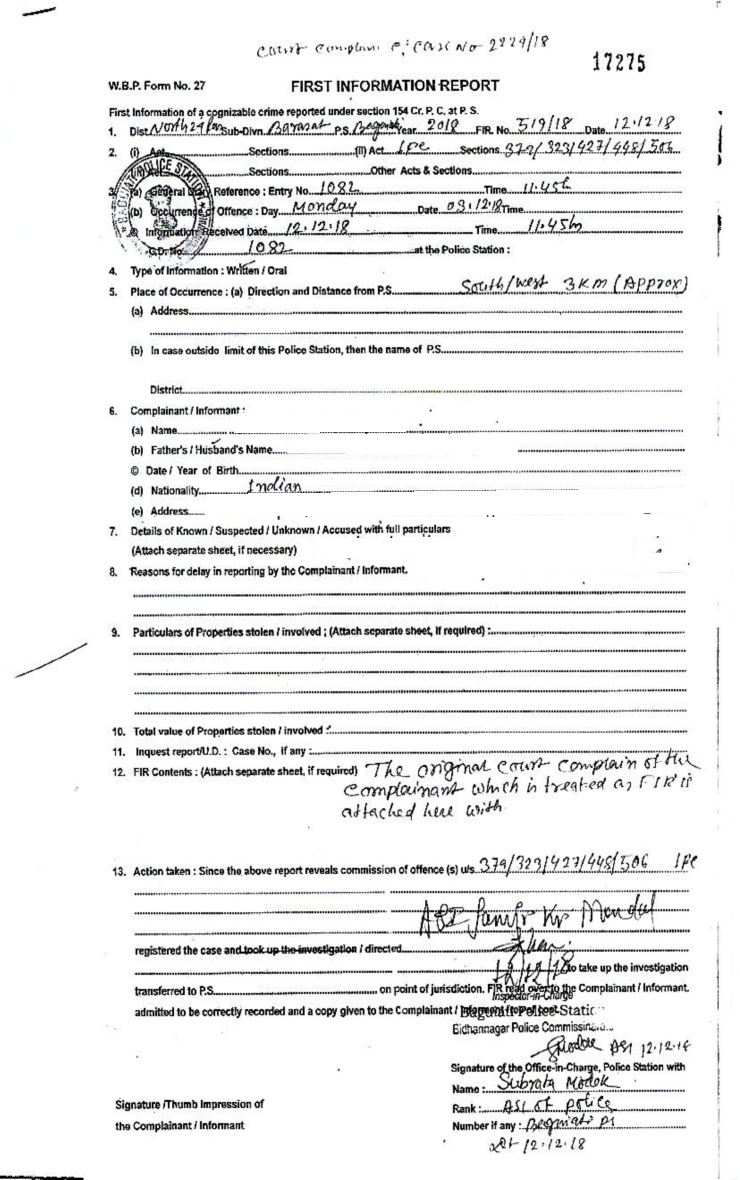 Court Complain C/Case No 2229/18
17275
W.B.P. Form No. 27
FIRST INFORMATION REPORT
First Information of a cognizable crime reported under section 154 Cr. P. C. at P. S.
1. Dist. North 24 Sub-Divn. Barasat P.S. Year 2018 FIR. No. 519/18 Date 12.12.18
2. (i) Act Sections (II) Act IPC Sections 379/323/427/448/506
Sections Other Acts & Sections
POLICE STATION
3. (a) General Diary Reference : Entry No 1082 Time 11.45h
(b) Occurrence of Offence : Day Monday Date 03.12.18 Time
© Information Received Date 12.12.18 Time 11.45h
G.D. No. 1082 at the Police Station :
4. Type of Information : Written / Oral
5. Place of Occurrence : (a) Direction and Distance from P.S. South/West 3 Km (Approx)
(a) Address
(b) In case outside limit of this Police Station, then the name of P.S.
District
6. Complainant / Informant :
(a) Name
(b) Father's / Husband's Name
© Date / Year of Birth
(d) Nationality Indian
(e) Address
7. Details of Known / Suspected / Unknown / Accused with full particulars
(Attach separate sheet, if necessary)
8. Reasons for delay in reporting by the Complainant / Informant.
9. Particulars of Properties stolen / involved ; (Attach separate sheet, if required) :
10. Total value of Properties stolen / involved :
11. Inquest report/U.D. : Case No., if any :
12. FIR Contents : (Attach separate sheet, if required) The original Court Complain of the
Complainant which is treated as FIR is
attached here with
13. Action taken : Since the above report reveals commission of offence (s) u/s. 379/323/427/448/506 IPC
Mondal
registered the case and took up the investigation / directed
12/12/18 to take up the investigation
transferred to P.S. on point of jurisdiction. FIR read over to the Complainant / Informant.
Inspector-in-Charge
admitted to be correctly recorded and a copy given to the Complainant /
Bidhannagar Police
ASI 12.12.18
Signature of the Office-in-Charge, Police Station with
Name : Subrata Modok
Signature /Thumb Impression of
Rank : ASI of police
the Complainant / Informant
Number if any :
12.12.18